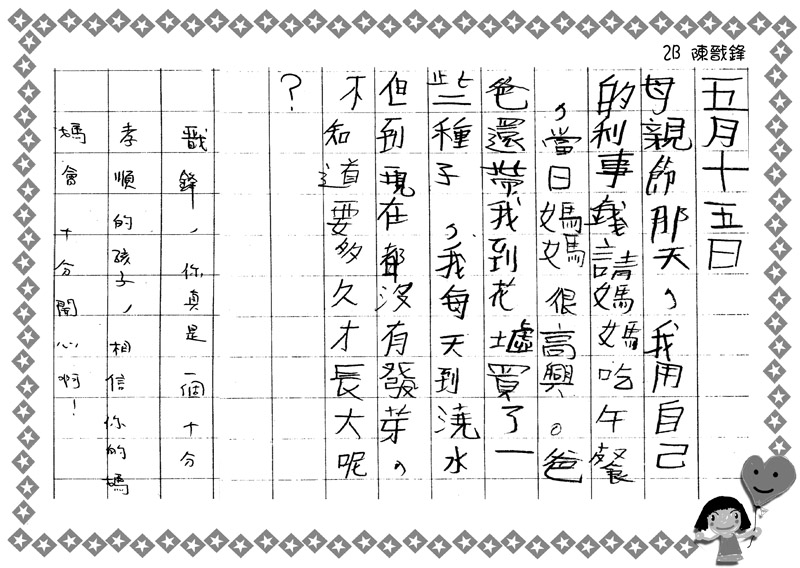 2B 陳戩鋒
五月十五日
母親節那天，我用自己
的利事錢請媽媽吃午餐
，當日媽媽很高興。爸
爸還帶我到花墟買了一
些種子，我每天到澆水
但到現在都沒有發芽，
不知道要多久才長大呢
？
戩鋒，你真是一個十分
孝順的孩子，相信你的媽
媽會十分開心啊！